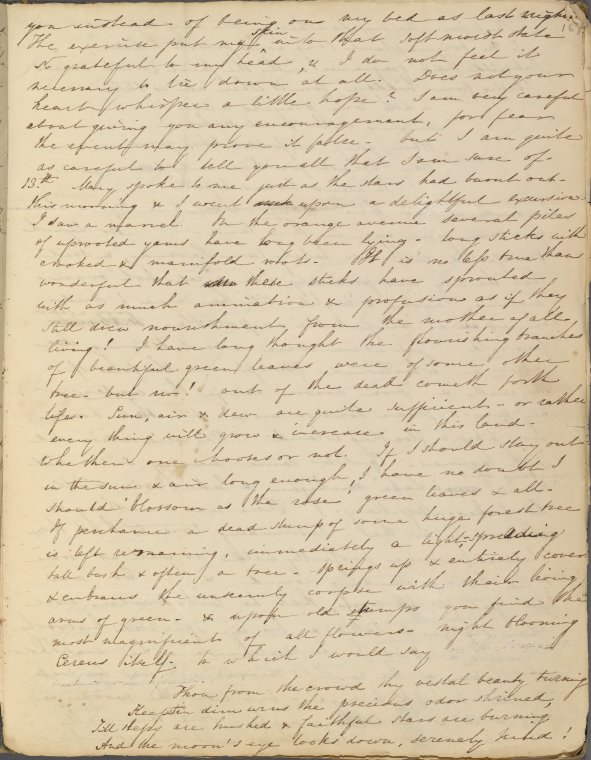 you instead of being on my bed as last night.
The exercise put my skin into that soft moist state
so grateful to my head, & I do not feel it
necessary to lie down at all. Does not your
heart whisper a little hope? I am very careful
about giving you any encouragement, for fear
the event may prove it false - but I am quite
as careful to tell you all that I am sure of -
13.th Mary spoke to me just as the stars had burnt out
this morning & I went upon a delightful excursion.
I saw a marvel. In the orange avenue several piles
of uprooted yams have long been lying - long sticks with
crooked & manifold roots. It is no less true than
wonderful that these sticks have sprouted
with as much animation & profusion as if they
still drew nourishment from the mother of all
living! I have long thought the flourishing branches
of beautiful green leaves were of some other
tree - but no! out of the dead cometh forth
life. Sun, air & dew are quite sufficient - or rather
every thing will grow & increase in this land -
whether one chooses or not. If I should stay out
in the sun & air long enough, I have no doubt I
should blossom as the rose, green leaves & all -
If perchance a dead stump of some huge forest tree
is left remaining, immediately a light, spreading
tall bush & often a tree - springs up & entirely covers
& embraces the unseemly corpse with their living
arms of green - & upon old stumps you find the
most magnificent of all flowers - night blooming
Cereus itself - to which I would say
Thou from the crowd thy vestal beauty turning
Keep'st in dim urns the precious odor shrined,
Till steps are hushed & faithful stars are burning
And the moon's eye looks down, serenely kind!